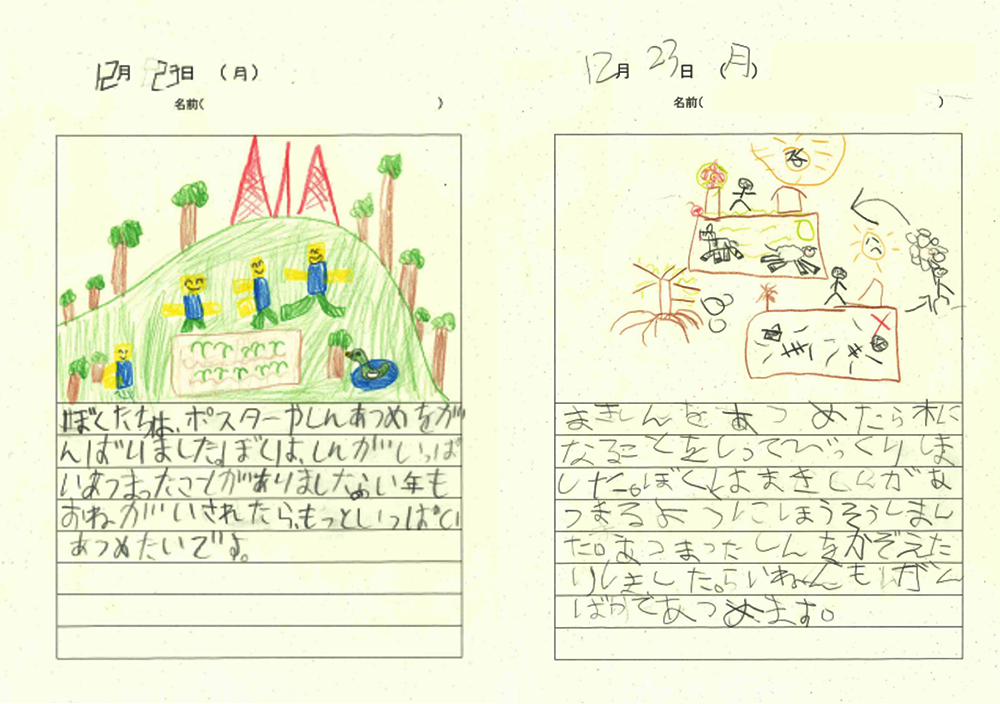 12月 23日 (月)
名前( )
ぼくたちは、ポスターやしんあつめをが
んばりました。ぼくは、しんがいっぱ
いあつまったことがありました。らい年も
おねがいされたら、もっといっぱい
あつめたいです。
12月 23日 (月)
名前( )
まきしんをあつめたら木に
なることをしってびっくりしま
した。ぼくはまきしんがあ
つまるようにほうそうしまし
た。あつまったしんをかぞえた
りしました。らいねんもがん
ばってあつめます。